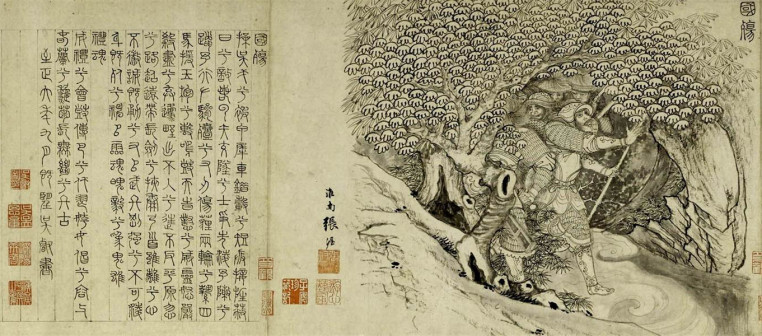 國殤
淮南張渥
國殤
操吳戈兮被犀甲車錯轂兮短兵接旌蔽
日兮敵若雲矢交墜兮士爭先淩余陣兮
躐余行左驂殪兮右刃傷霾兩輪兮縶四
馬援玉枹兮擊鳴鼓天時懟兮威靈怒嚴
殺盡兮棄原野出不入兮往不反平原忽
兮路超遠帶長劍兮挾秦弓首雖離兮心
不懲誠既勇兮又以武終剛強兮不可淩
身既死兮神以靈魂魄毅兮為鬼雄
禮魂
成禮兮會鼓傳芭兮代舞姱女倡兮容與
春蘭兮秋菊長無絕兮終古
至正六年九月既望吳叡書